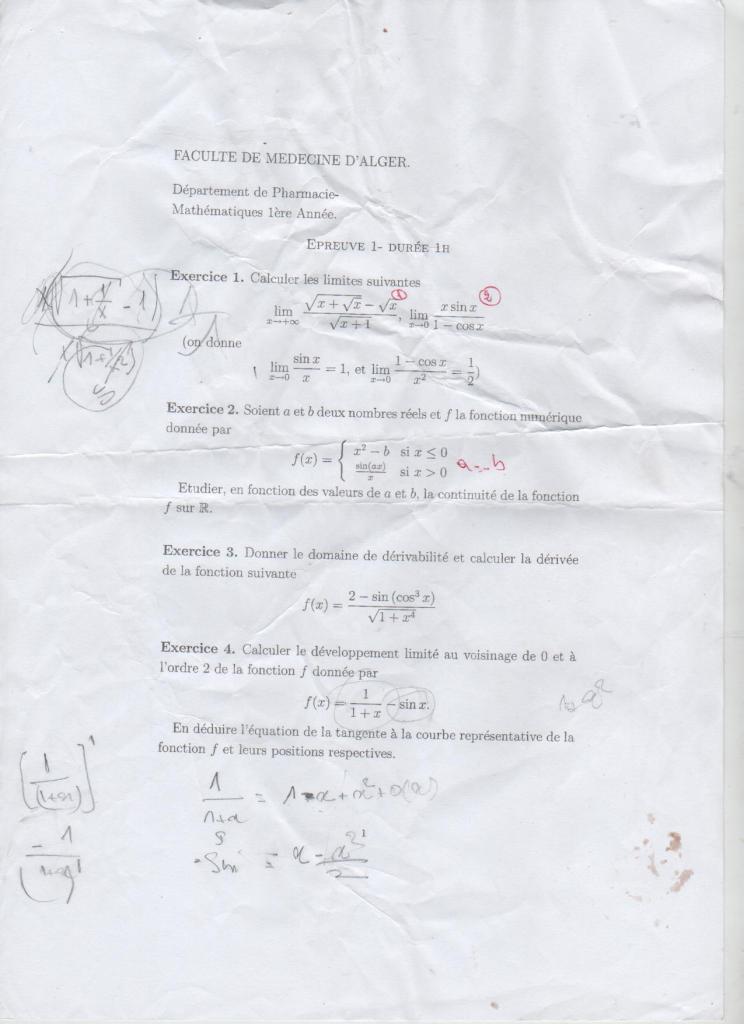 FACULTE DE MEDECINE D'ALGER.
Département de Pharmacie-
Mathématiques 1ère Année.
EPREUVE 1- DURÉE 1H
Exercice 1. Calculer les limites suivantes
lim x→+∞ (√(x + √x) − √x) / √(x + 1) ①, lim x→0 (x sin x) / (1 − cos x) ②
(on donne
lim x→0 (sin x) / x = 1, et lim x→0 (1 − cos x) / x² = 1/2)
Exercice 2. Soient a et b deux nombres réels et f la fonction numérique
donnée par
f(x) = { x² − b si x ≤ 0
sin(ax)/x si x > 0 a=-b
Etudier, en fonction des valeurs de a et b, la continuité de la fonction
f sur ℝ.
Exercice 3. Donner le domaine de dérivabilité et calculer la dérivée
de la fonction suivante
f(x) = (2 − sin (cos³ x)) / √(1 + x⁴)
Exercice 4. Calculer le développement limité au voisinage de 0 et à
l'ordre 2 de la fonction f donnée par
f(x) = 1/(1 + x) − sin x.
En déduire l'équation de la tangente à la courbe représentative de la
fonction f et leurs positions respectives.
1/(1+x) = 1-x+x²+o(x)
= x - x²/2